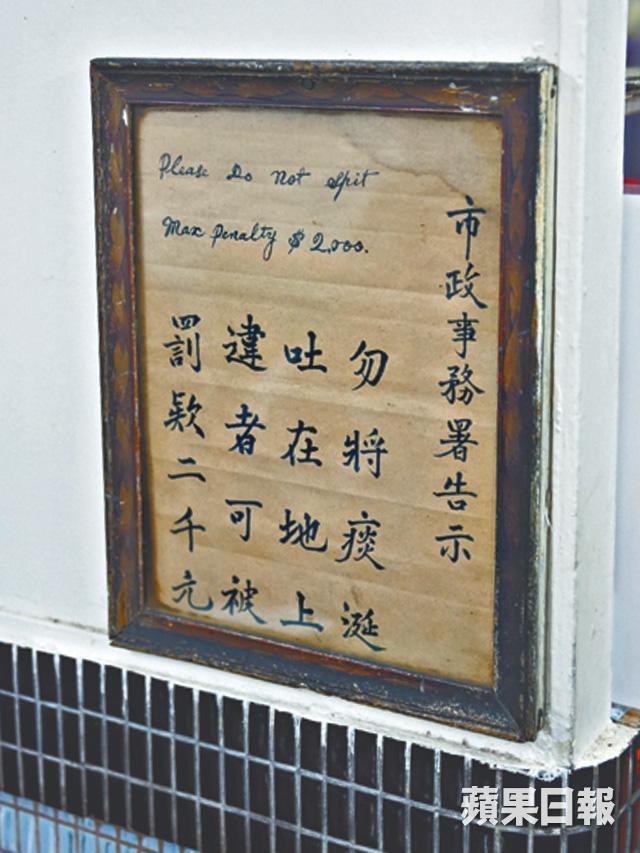 Please Do Not Spit
Max Penalty $2,000.
市政事務署告示
勿將痰涎
吐在地上
違者可被
罰欵二千元
蘋果日報